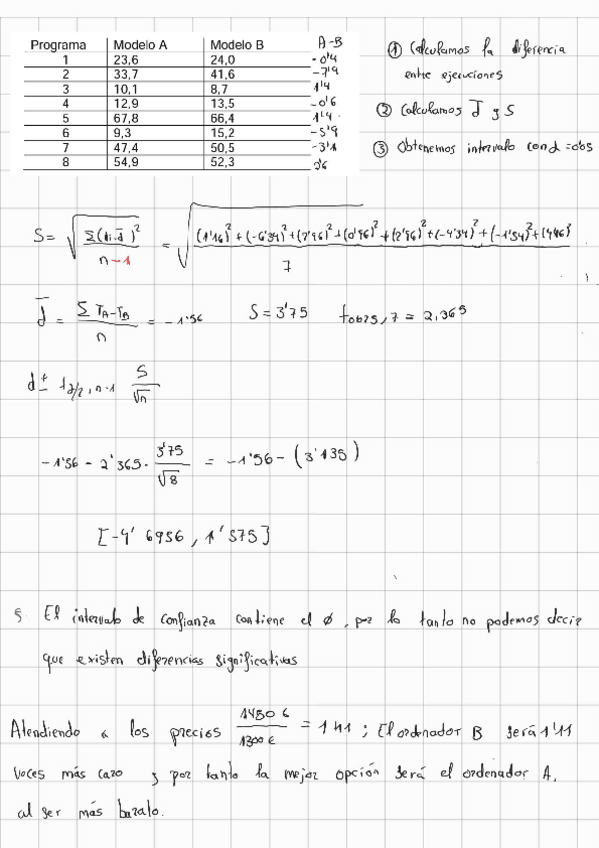 Programa Modelo A Modelo B A-B
1 23,6 24,0 -0'4
2 33,7 41,6 -7'9
3 10,1 8,7 1'4
4 12,9 13,5 -0'6
5 67,8 66,4 1'4
6 9,3 15,2 -5'9
7 47,4 50,5 -3'1
8 54,9 52,3
① Calculamos la diferencia
entre ejecuciones
② Calculamos d̅ y S
③ Obtenemos intervalo con α=0'05
S = √(Σ(di-d̅)² / n-1) = √((1'16)² + (-6'34)² + (2'96)² + (0'96)² + (2'96)² + (-4'34)² + (-1'54)² + (4'16)² / 7)
d̅ = Σ TA-TB / n = -1'56 S = 3'75 t0'025,7 = 2,365
d̅ ± tα/2, n-1 S/√n
-1'56 - 2'365 · 3'75/√8 = -1'56 - (3'135)
[-4'6956, 1'575]
El intervalo de confianza contiene el 0, por lo tanto no podemos decir
que existen diferencias significativas
Atendiendo a los precios 1450 €/1300 € = 1'11; El ordenador B será 1'11
veces más caro y por tanto la mejor opción será el ordenador A,
al ser más barato.